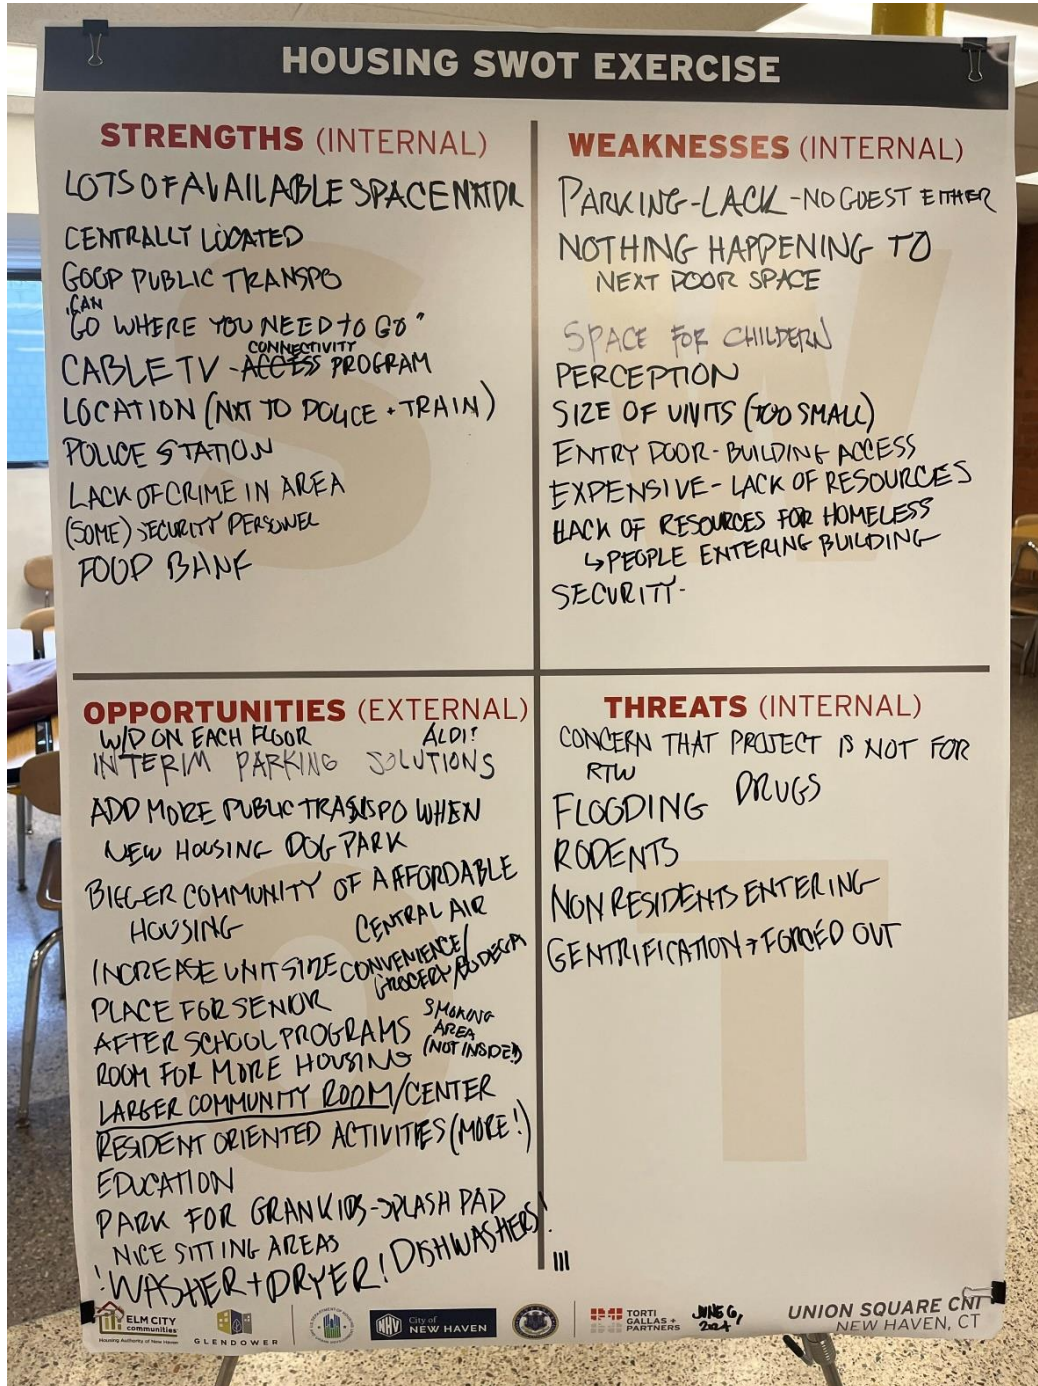 HOUSING SWOT EXERCISE
STRENGTHS (INTERNAL)
LOTS OF AVAILABLE SPACE NXTDR
CENTRALLY LOCATED
GOOD PUBLIC TRANSPO
"CAN
GO WHERE YOU NEED TO GO"
CONNECTIVITY
CABLE TV - ACCESS PROGRAM
LOCATION (NXT TO POLICE + TRAIN)
POLICE STATION
LACK OF CRIME IN AREA
(SOME) SECURITY PERSONEL
FOOD BANK
WEAKNESSES (INTERNAL)
PARKING - LACK - NO GUEST EITHER
NOTHING HAPPENING TO
NEXT DOOR SPACE
SPACE FOR CHILDERN
PERCEPTION
SIZE OF UNITS (TOO SMALL)
ENTRY DOOR - BUILDING ACCESS
EXPENSIVE - LACK OF RESOURCES
LACK OF RESOURCES FOR HOMELESS
↳ PEOPLE ENTERING BUILDING
SECURITY -
OPPORTUNITIES (EXTERNAL)
W/D ON EACH FLOOR ALDI?
INTERIM PARKING SOLUTIONS
ADD MORE PUBLIC TRANSPO WHEN
NEW HOUSING DOG PARK
BIGGER COMMUNITY OF AFFORDABLE
HOUSING
CENTRAL AIR
INCREASE UNIT SIZE CONVENIENCE/
GROCERY/BODEGA
PLACE FOR SENIOR
AFTER SCHOOL PROGRAMS
SMOKING
AREA
(NOT INSIDE!)
ROOM FOR MORE HOUSING
LARGER COMMUNITY ROOM/CENTER
RESIDENT ORIENTED ACTIVITIES (MORE!)
EDUCATION
PARK FOR GRANKIDS - SPLASH PAD
NICE SITTING AREAS
! WASHER + DRYER! DISHWASHERS!
THREATS (INTERNAL)
CONCERN THAT PROJECT IS NOT FOR
RTW
DRUGS
FLOODING
RODENTS
NON RESIDENTS ENTERING
GENTRIFICATION → FORCED OUT
III
ELM CITY
communities
Housing Authority of New Haven
GLENDOWER
NHV
City of
NEW HAVEN
TORTI
GALLAS +
PARTNERS
JUNE 6,
2024
UNION SQUARE CNI
NEW HAVEN, CT